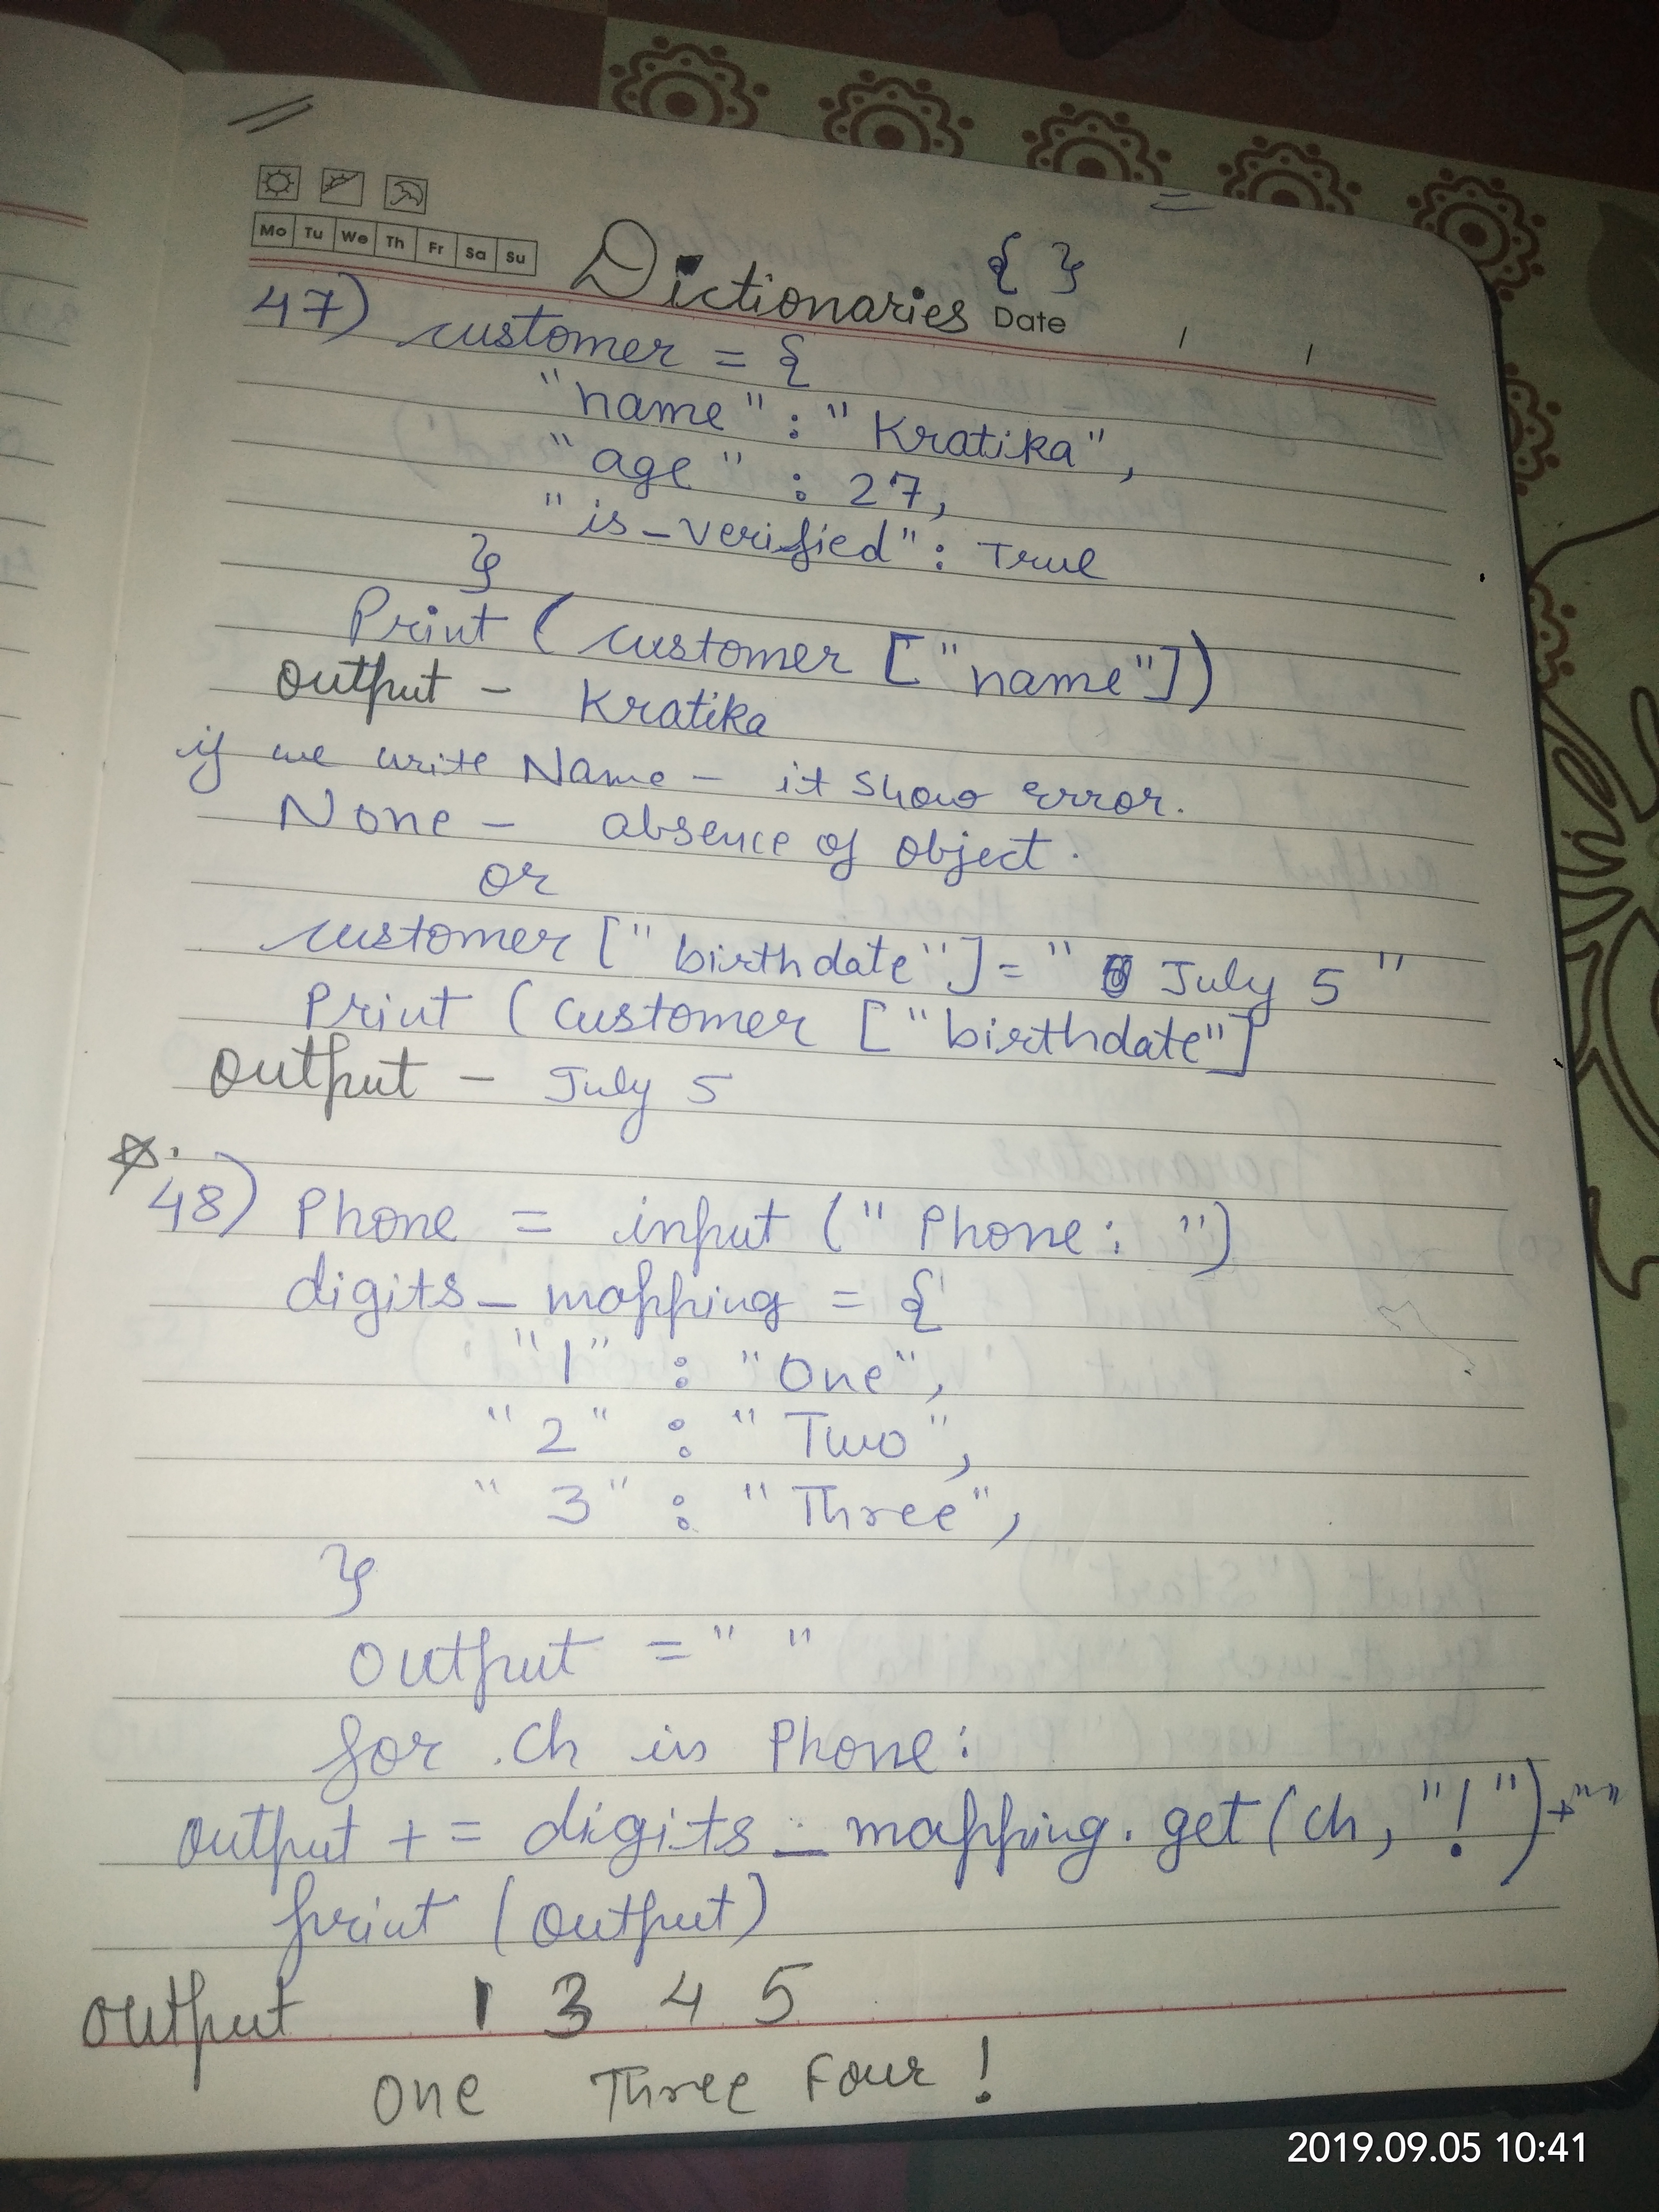 Mo Tu We Th Fr Sa Su
Dictionaries { }
Date / /
47) customer = {
"name" : "Kratika",
"age" : 27,
"is_verified" : True
}
Print (customer ["name"])
output - Kratika
if we write Name - it show error.
None - absence of object.
or
customer ["birthdate"] = " July 5 "
Print (customer ["birthdate"]
output - July 5
48) Phone = input (" Phone: ")
digits_mapping = {
"1" : "One",
"2" : "Two",
"3" : "Three",
}
output = " "
for ch in Phone:
output += digits_mapping.get(ch, "!") + " "
print (output)
output 1 3 4 5
One Three Four !
2019.09.05 10:41